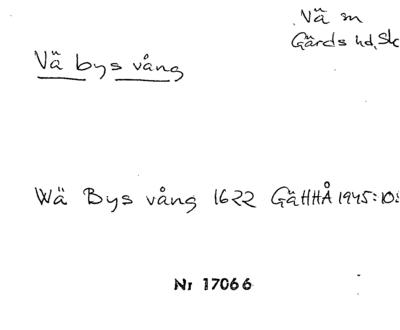 Vä sn
Gärds hd, Sk
Vä bys vång
Wä Bys vång 1622 GäHHÅ 1945:10
Nr 17066